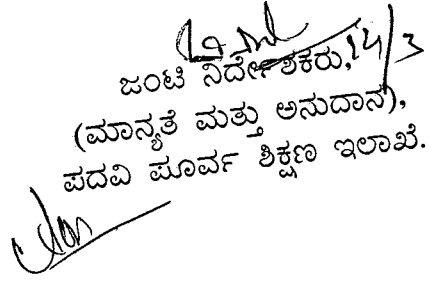 14/3
ಜಂಟಿ ನಿರ್ದೇಶಕರು,
(ಮಾನ್ಯತೆ ಮತ್ತು ಅನುದಾನ),
ಪದವಿ ಪೂರ್ವ ಶಿಕ್ಷಣ ಇಲಾಖೆ.